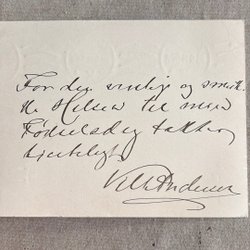 For den venlige og smuk-
ke Hilsen til min
Fødselsdag takker
hjerteligt
Vilh Andersen